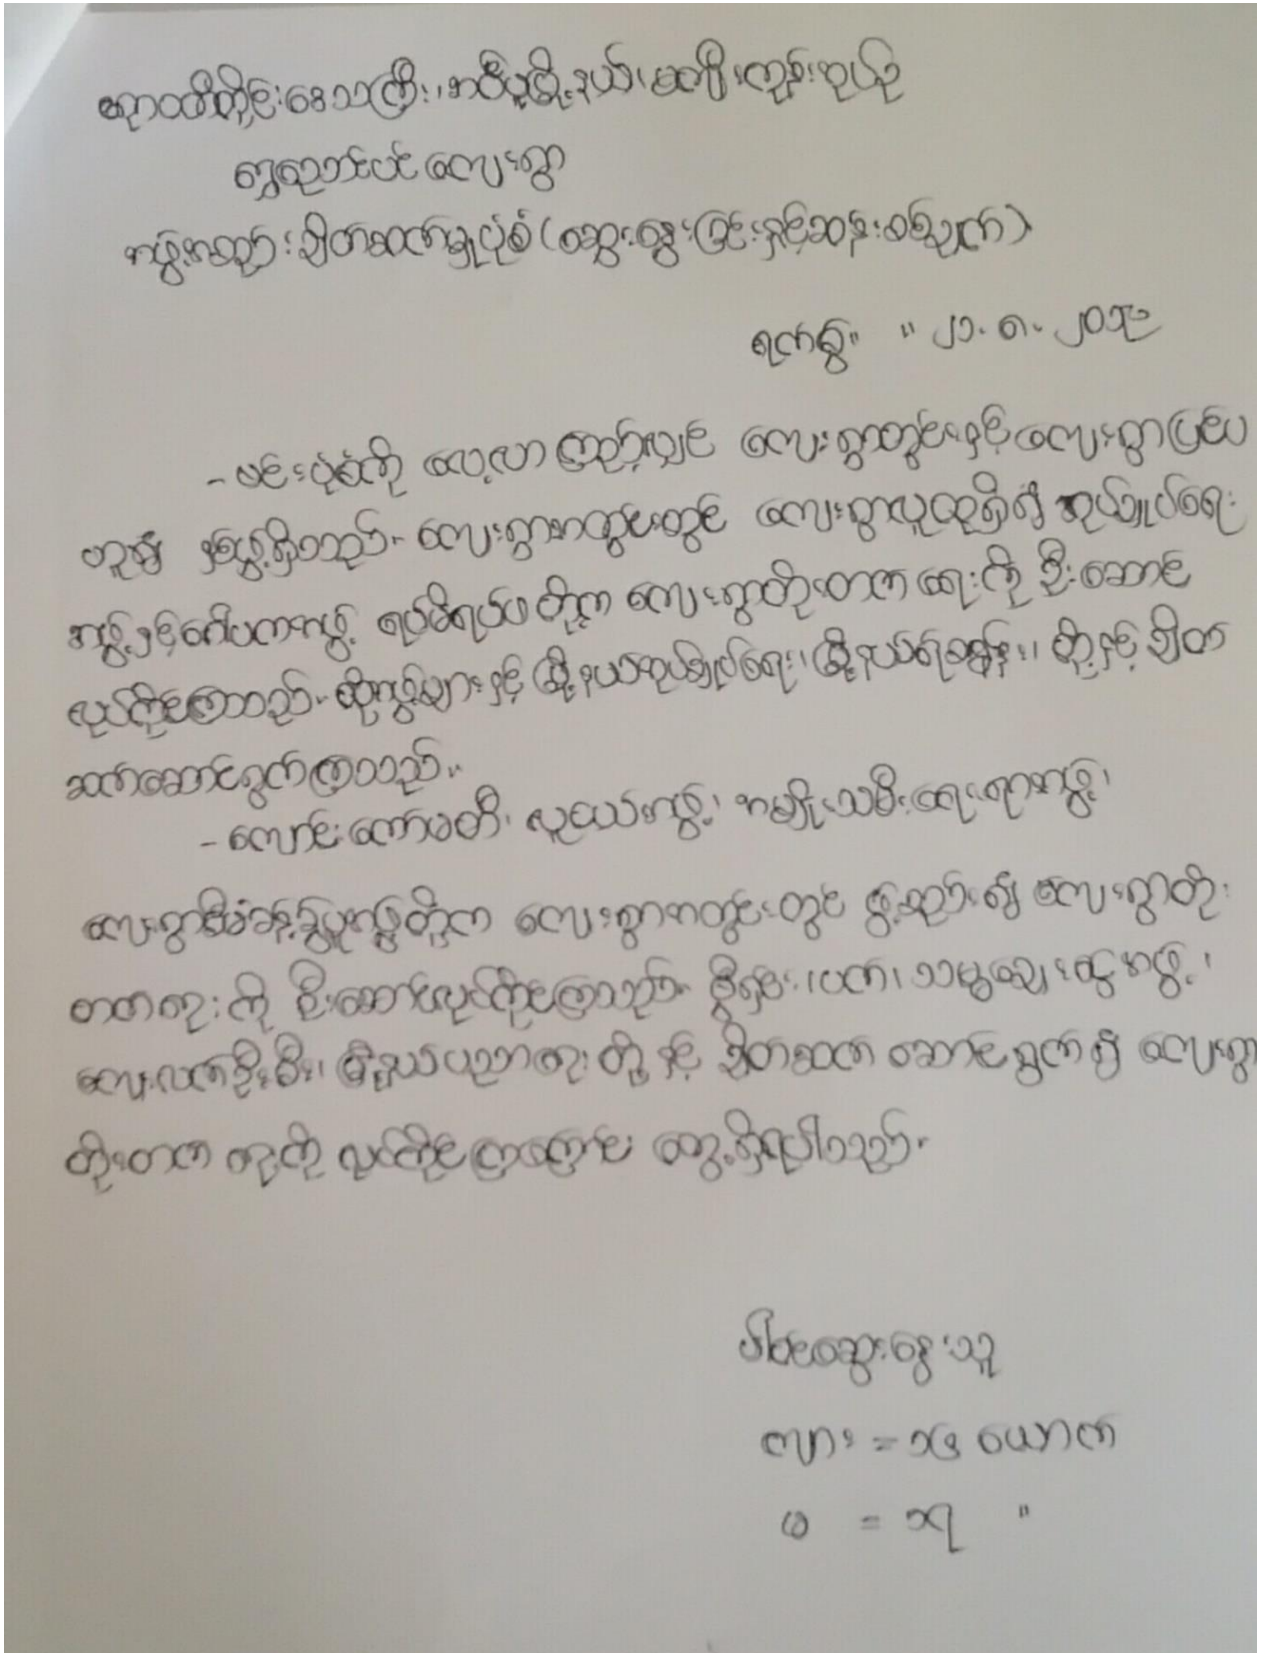 ဧရာဝတီတိုင်းဒေသကြီး၊ ဇလွန်မြို့နယ်၊ မကျီးကုန်းအုပ်စု
ကျေးရွာ
အဖွဲ့အစည်းချိတ်ဆက်မှုပုံစံ (ဆွေးနွေးခြင်းနှင့်ဆန်းစစ်ချက်)
ရက်စွဲ။ ။ ၂၁.၈.၂၀၁၉
- မင်းပုံစံကို လေ့လာကြည့်လျှင် ကျေးရွာတွင်းနှင့် ကျေးရွာပြင်ပ
ဟူ၍ နှစ်ဖွဲ့ရှိသည်။ ကျေးရွာအတွင်းတွင် ကျေးရွာလူထုရှိ၍ အုပ်ချုပ်ရေး
အဖွဲ့နှင့်ဂေါပကအဖွဲ့ ရပ်မိရပ်ဖတို့က ကျေးရွာတိုးတက်ရေးကို ဦးဆောင်
လုပ်ကိုင်ကြသည်။ ထိုအဖွဲ့များနှင့် မြို့နယ်အုပ်ချုပ်ရေး၊ မြို့နယ်ရဲစခန်း၊ တို့နှင့် ချိတ်
ဆက်ဆောင်ရွက်ကြသည်။
- ကျောင်းကော်မတီ၊ လူငယ်အဖွဲ့၊ အမျိုးသမီးရေးရာအဖွဲ့၊
ကျေးရွာစီမံခန့်ခွဲမှုအဖွဲ့တို့က ကျေးရွာအတွင်းတွင် ဖွဲ့စည်း၍ ကျေးရွာတိုး
တက်ရေးကို ဦးဆောင်လုပ်ကိုင်ကြသည်။ မြို့ရှမ်း၊ ပက်၊ သမ္မချေးငွေအဖွဲ့၊
ကျေးလက်ဦးစီး၊ မြို့နယ်ပညာရေးတို့နှင့် ချိတ်ဆက် ဆောင်ရွက်၍ ကျေးရွာ
တိုးတက်ရေးကို လုပ်ကိုင်ကြကြောင်း တွေ့ရှိရပါသည်။
ပါဝင်ဆွေးနွေးသူ
ကျား = ၁၄ ယောက်
မ = ၁၅ "